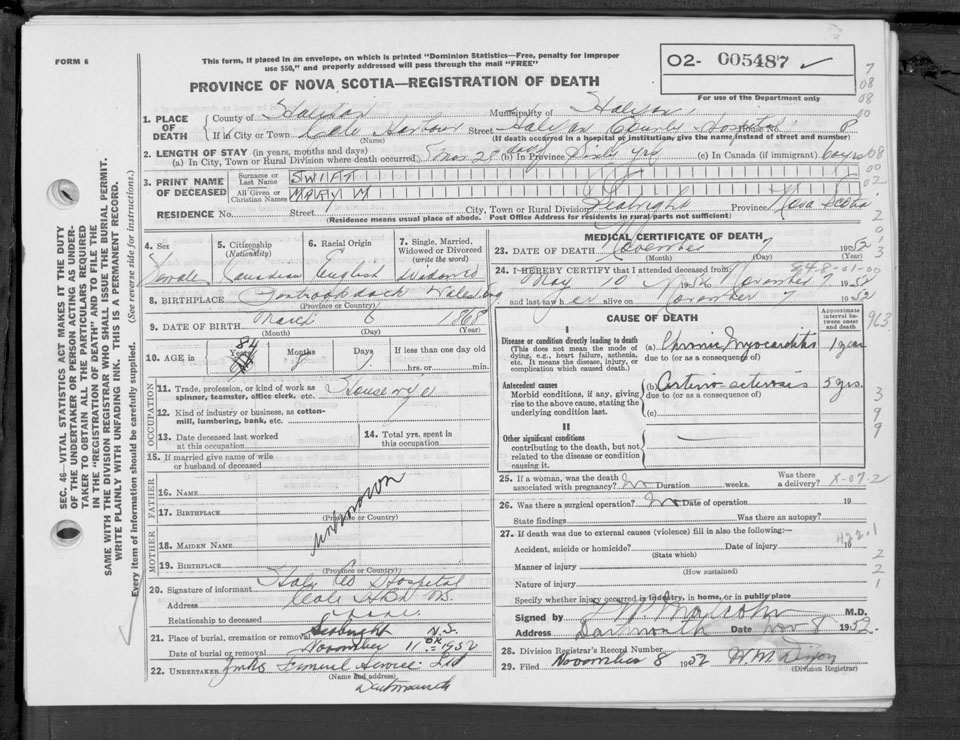 FORM 6
This form, if placed in an envelope, on which is printed "Dominion Statistics—Free, penalty for improper
use $50," and properly addressed will pass through the mail "FREE"
O2- 005487 ✓
PROVINCE OF NOVA SCOTIA—REGISTRATION OF DEATH
For use of the Department only
1. PLACE OF DEATH
County of Halifax Municipality of Halifax
If in City or Town Cole Harbour Street Halifax County Hospital House No.
(Name) (If death occurred in a hospital or institution, give the name instead of street and number)
2. LENGTH OF STAY (in years, months and days)
(a) In City, Town or Rural Division where death occurred 5 mos 28 days (b) In Province Sixty yrs (c) In Canada (if immigrant) 60 yrs
3. PRINT NAME OF DECEASED
Surname or Last Name SWIFT
All Given or Christian Names MARY M
RESIDENCE No. Street City, Town or Rural Division Seabright Province Nova Scotia
(Residence means usual place of abode. Post Office Address for residents in rural parts not sufficient)
4. Sex Female
5. Citizenship (Nationality) Canadian
6. Racial Origin English
7. Single, Married, Widowed or Divorced (write the word) Widowed
8. BIRTHPLACE Wales, Eng
(Province or Country)
9. DATE OF BIRTH March 6 1868
(Month) (Day) (Year)
10. AGE in 84 Years Months 8 Days If less than one day old
hrs. or min.
OCCUPATION
11. Trade, profession, or kind of work as spinner, teamster, office clerk, etc. Housewife
12. Kind of industry or business, as cotton-mill, lumbering, bank, etc.
13. Date deceased last worked at this occupation
14. Total yrs. spent in this occupation
15. If married give name of wife or husband of deceased
FATHER
16. NAME
17. BIRTHPLACE
(Province or Country)
unknown
MOTHER
18. MAIDEN NAME
19. BIRTHPLACE
(Province or Country)
20. Signature of informant Halx Co Hospital
Address Cole Hbr N.S.
Relationship to deceased
21. Place of burial, cremation or removal Seabright N.S.
Date of burial or removal November 11 1952
22. UNDERTAKER Zinks Funeral Service Ltd
(Name and address)
Dartmouth
MEDICAL CERTIFICATE OF DEATH
23. DATE OF DEATH November 7 1952
(Month) (Day) (Year)
24. I HEREBY CERTIFY that I attended deceased from
May 10 1952 to November 7 1952
and last saw her alive on November 7 1952
CAUSE OF DEATH
Approximate interval between onset and death
I
Disease or condition directly leading to death
(This does not mean the mode of dying, e.g., heart failure, asthenia, etc. It means the disease, injury, or complication which caused death.)
(a) Chronic Myocarditis 1 year
due to (or as a consequence of)
Antecedent causes
Morbid conditions, if any, giving rise to the above cause, stating the underlying condition last.
(b) Arterio sclerosis 5 yrs.
due to (or as a consequence of)
(c)
II
Other significant conditions
contributing to the death, but not related to the disease or condition causing it.
25. If a woman, was the death associated with pregnancy? No Duration weeks. Was there a delivery? X-07-2
26. Was there a surgical operation? No Date of operation 19
State findings Was there an autopsy?
27. If death was due to external causes (violence) fill in also the following:—
Accident, suicide or homicide? Date of injury 19
(State which)
422.1
Manner of injury
(How sustained)
Nature of injury
Specify whether injury occurred in industry, in home, or in public place
Signed by M.D.
Address Dartmouth Date Nov 8 1952.
28. Division Registrar's Record Number
29. Filed November 8 1952
(Division Registrar)
SEC. 46—VITAL STATISTICS ACT MAKES IT THE DUTY
OF THE UNDERTAKER OR PERSON ACTING AS UNDER-
TAKER TO OBTAIN ALL THE PARTICULARS REQUIRED
IN THE "REGISTRATION OF DEATH" AND TO FILE THE
SAME WITH THE DIVISION REGISTRAR WHO SHALL ISSUE THE BURIAL PERMIT.
WRITE PLAINLY WITH UNFADING INK. THIS IS A PERMANENT RECORD.
Every item of information should be carefully supplied. (See reverse side for instructions.)